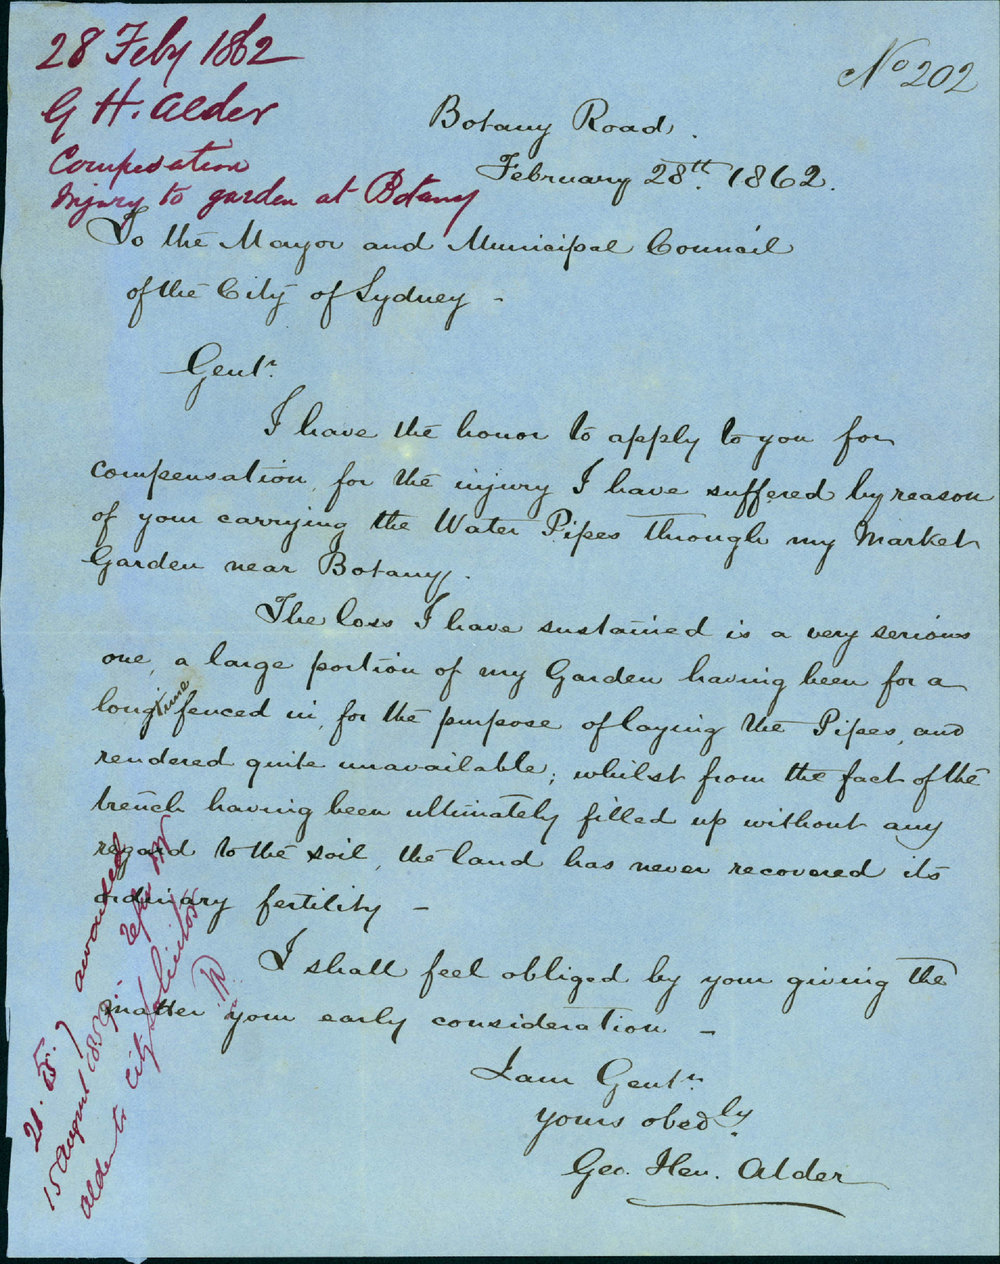 28 Feby 1862
G H. Alder
Compensation
Injury to garden at Botany
No 202
Botany Road.
February 28th. 1862.
To the Mayor and Municipal Council
of the City of Sydney -
Gentn.
I have the honor to apply to you for
compensation, for the injury I have suffered by reason
of your carrying the Water Pipes through my Market
Garden near Botany.
The loss I have sustained is a very serious
one, a large portion of my Garden having been for a
long time fenced in, for the purpose of laying the Pipes, and
rendered quite unavailable; whilst from the fact of the
trench having been ultimately filled up without any
regard to the soil, the land has never recovered its
ordinary fertility -
I shall feel obliged by your giving the
matter your early consideration -
I am Gentn.
Yours obedly.
Geo. Hen. Alder
awarded
15 August 1859
Alder to City Solicitor